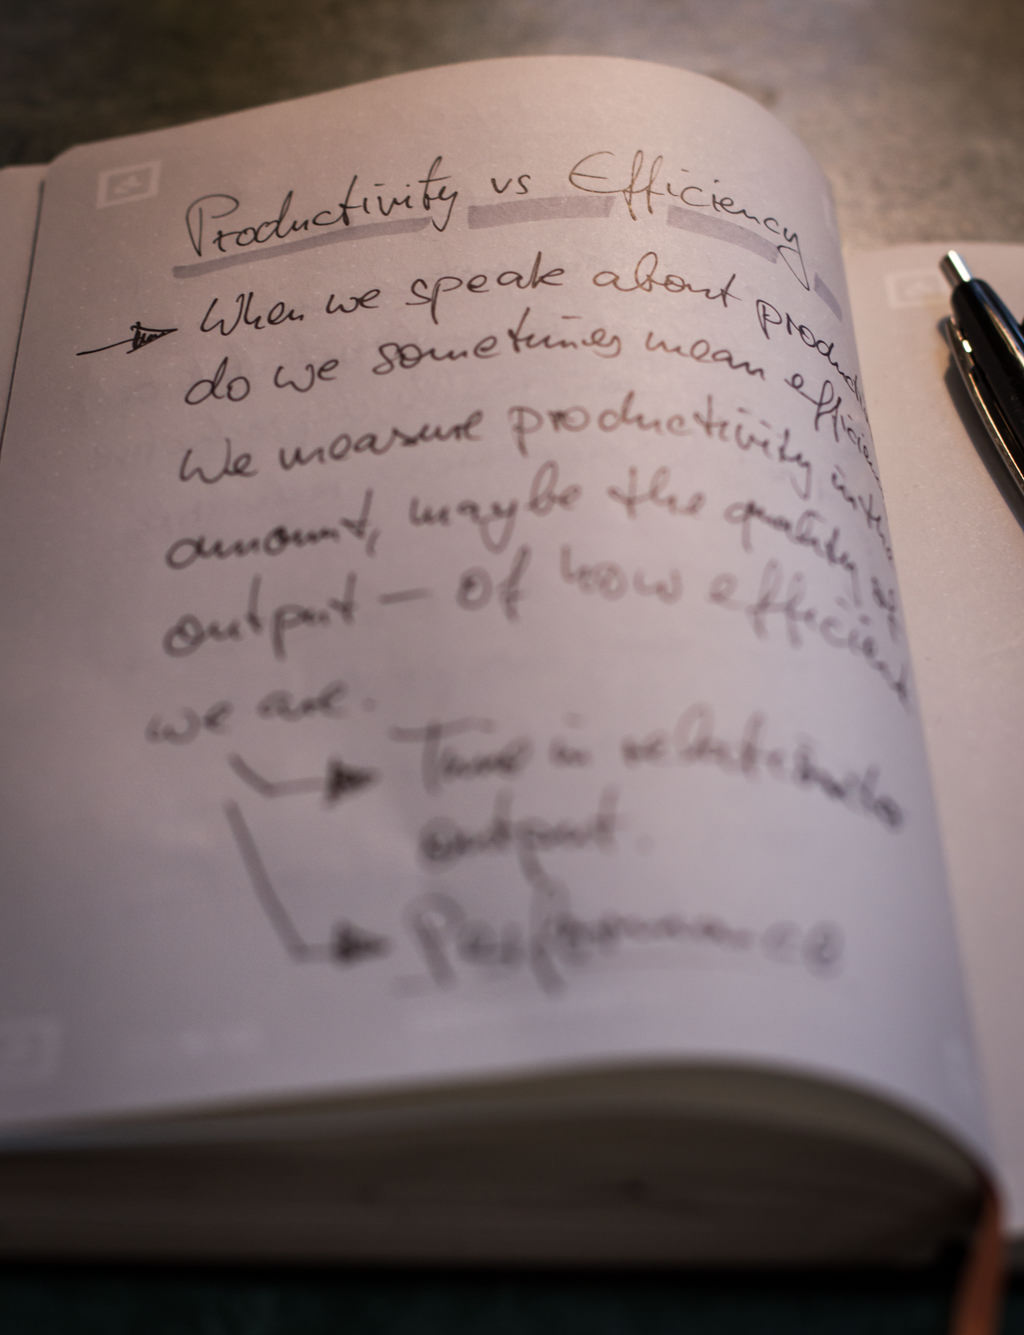 Productivity vs Efficiency
When we speak about
do we sometimes mean
We measure productivity in the
amount, maybe the quality of
output – of how efficient
we are.
Time in relation to
output.
Performance